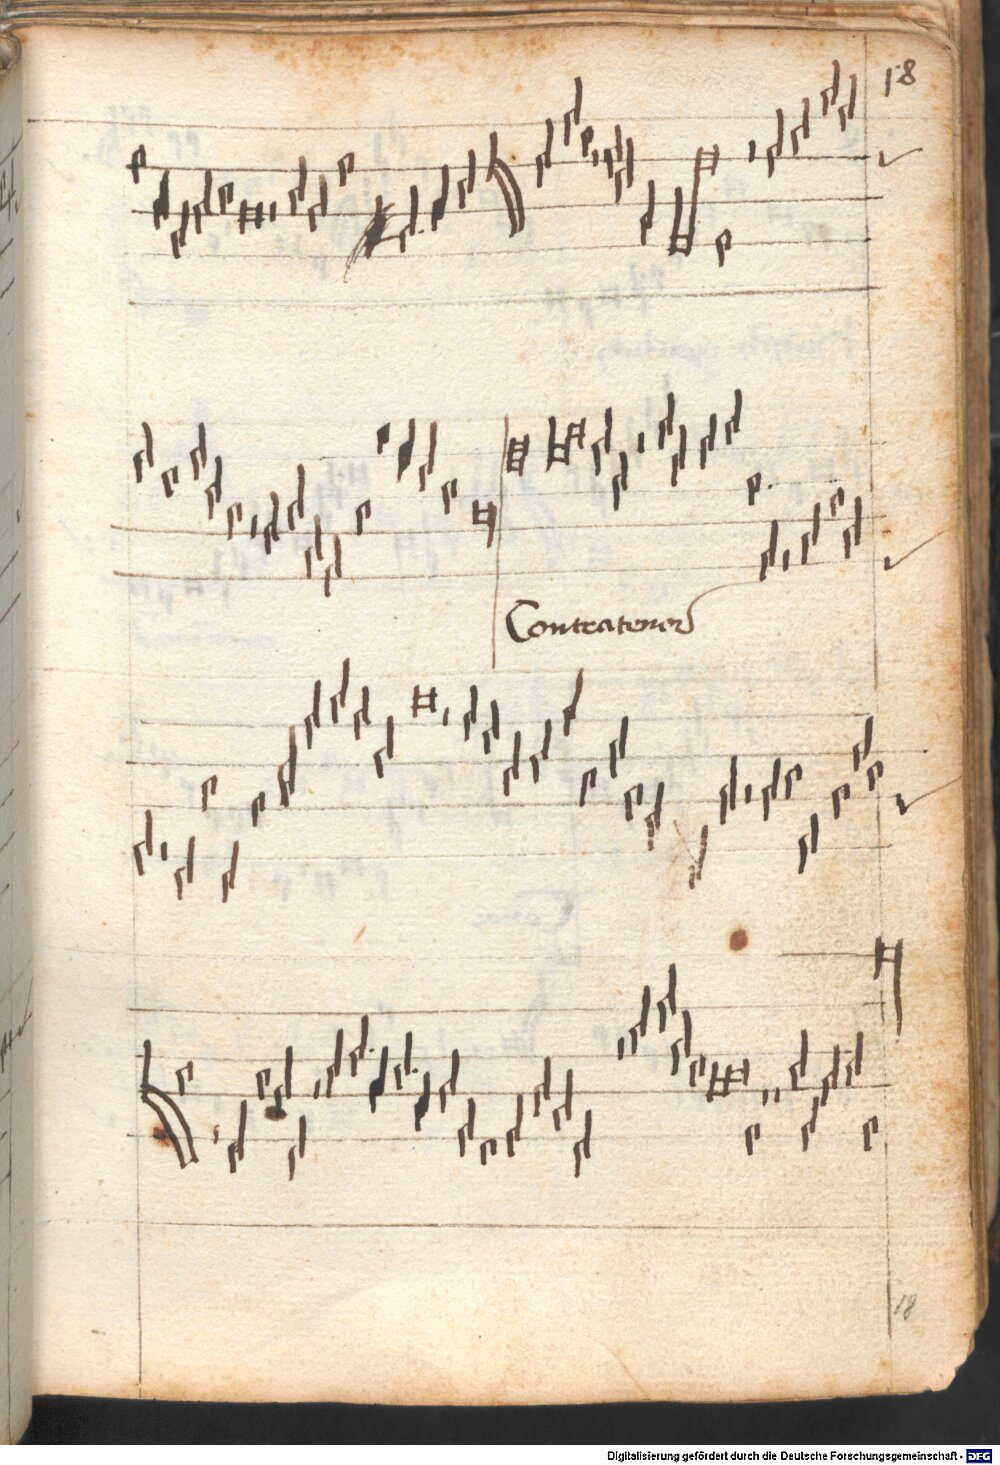 18
Contratenor
18
Digitalisierung gefördert durch die Deutsche Forschungsgemeinschaft - DFG